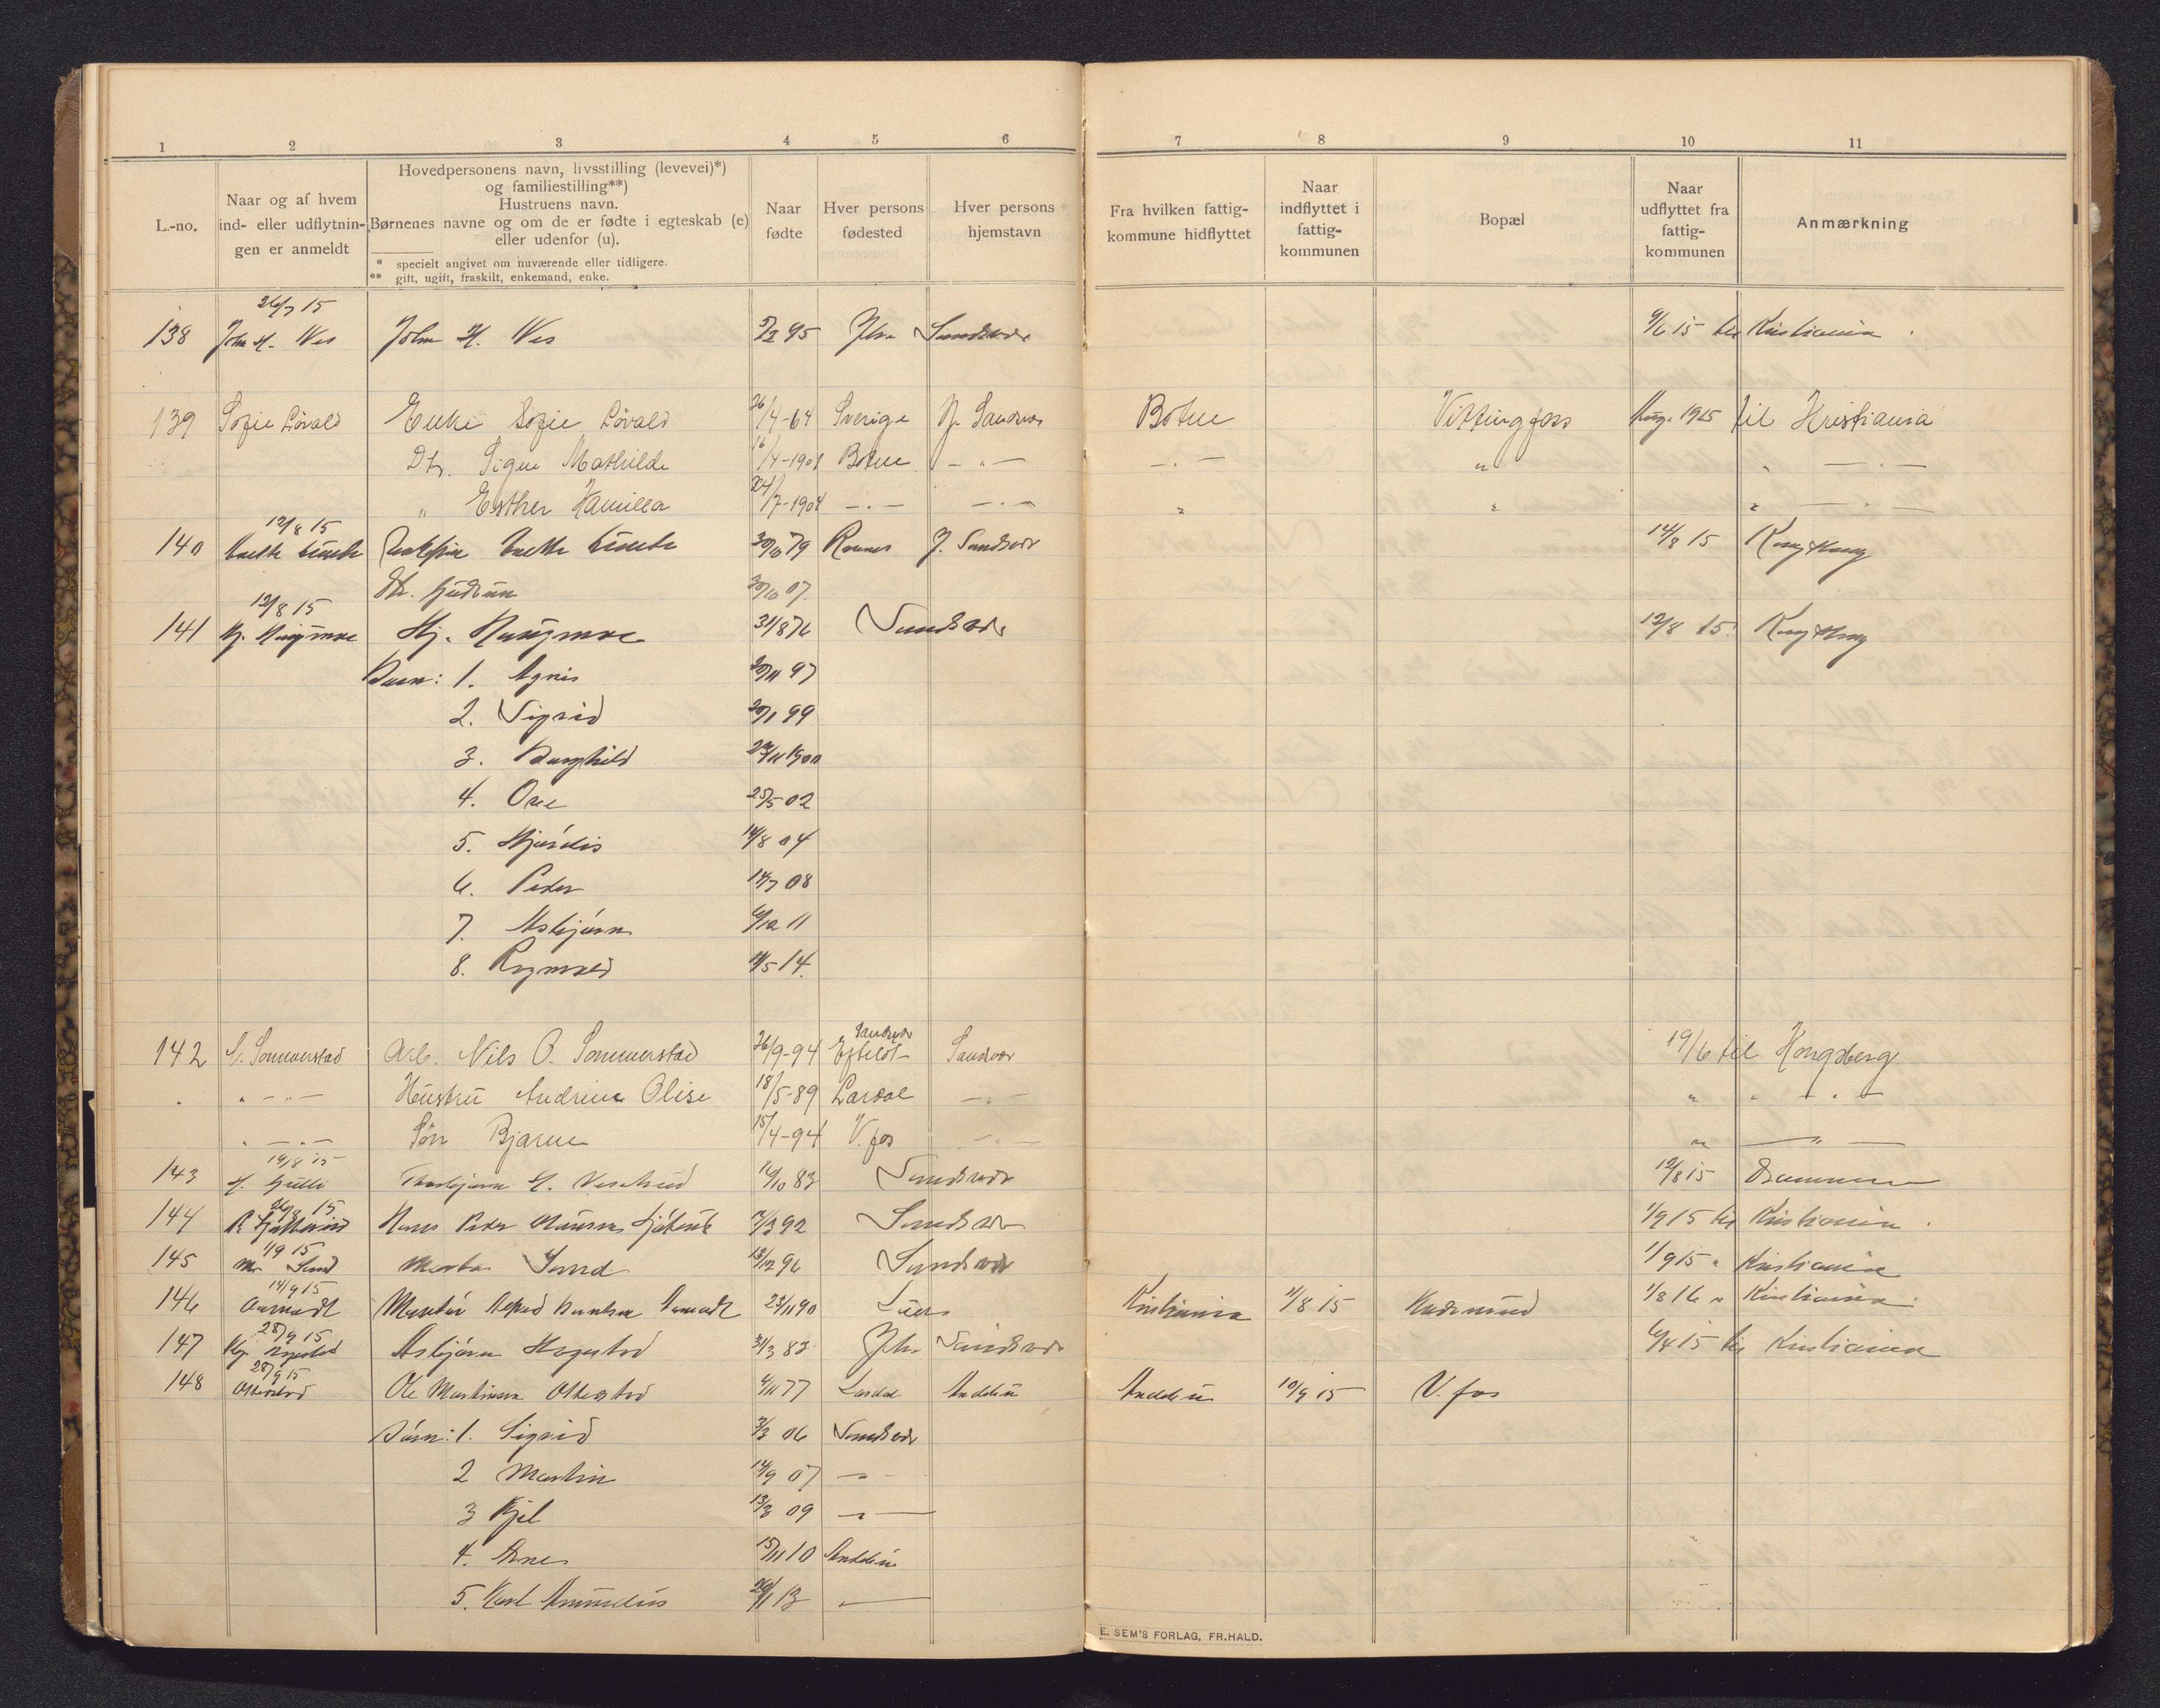 1 2 3 4 5 6 7 8 9 10 11
L.-no.
Naar og af hvem
ind- eller udflytnin-
gen er anmeldt
Hovedpersonens navn, livsstilling (levevei)*)
og familiestilling**)
Hustruens navn.
Børnenes navne og om de er fødte i egteskab (e)
eller udenfor (u).
* specielt angivet om nuværende eller tidligere.
** gift, ugift, fraskilt, enkemand, enke.
Naar
fødte
Hver persons
fødested
Hver persons
hjemstavn
Fra hvilken fattig-
kommune hidflyttet
Naar
indflyttet i
fattig-
kommunen
Bopæl
Naar
udflyttet fra
fattig-
kommunen
Anmærkning
138 John H. Ves John H. Ves 95 Sandsvær 15 til Kristiania
139 Sofie Lövald Enke Sofie Lövald 26/4-64 Sverige Y. Sandsvær Botne Vittingfoss Aug. 1915 til Kristiania
Dtr. Signe Mathilde 16/4-1901 Botne - " - - " - " " - " -
" Esther Kamilla 24/7-1904 - " - - " - " " " - " -
12/8 15
140 30/10 79 Y. Sandsvær 14/8 15 Kongsberg
Dtr. Gudrun 30/10 07.
12/8 15
141 Hj. Haugmoe Hj. Haugmoe 31/8 76 Sandsvær 12/8 15. Kongsberg
Børn: 1. Agnes 97
2. Sigrid 99
3. Borghild 1900
4. Ove 25/5 02
5. Hjørdis 14/8 04
6. Peder 08
7. Asbjørn 6/12 11
8. Ragnvald 14.
142 N. Sommerstad Arb. Nils O. Sommerstad 26/9-94 Sandsvær Efteløt Sandsvær 19/6 til Kongsberg
" - " - Hustru Andrine Olise 18/5-89 Lardal - " - " " - " -
" - " - Søn Bjarne 15/4-94 V.fos - " - " - " -
19/8 15
143 H. Gulli Thorbjørn H. 83 Sandsvær 12/8 15 Drammen
144 Hans Peder 92 Sandsvær 1/9 15 til Kristiania
1/9 15
145 M. Sund Marta Sund 13/12 96 Sandsvær 1/9 15 " Kristiania
14/9 15
146 Aamodt Alfred Aamodt 23/11 90 Kristiania 8 15 1/8 16 " Kristiania
28/9 15
147 Asbjørn Hogstad 31/3 83 Sandsvær 15 til Kristiania
28/9 15
148 Otterstad Ole Martinsen Otterstad 4/11 77 Lardal Andebu Andebu 10/9 15 V. fos
Børn: 1. Sigrid 06 Sandsvær
2 Martin 14/9 07 - " -
3 Kjel 09 - " -
4. Arne 15/11 10 Andebu
5. Karl Amundus 13 - " -
E. SEM'S FORLAG, FR.HALD.